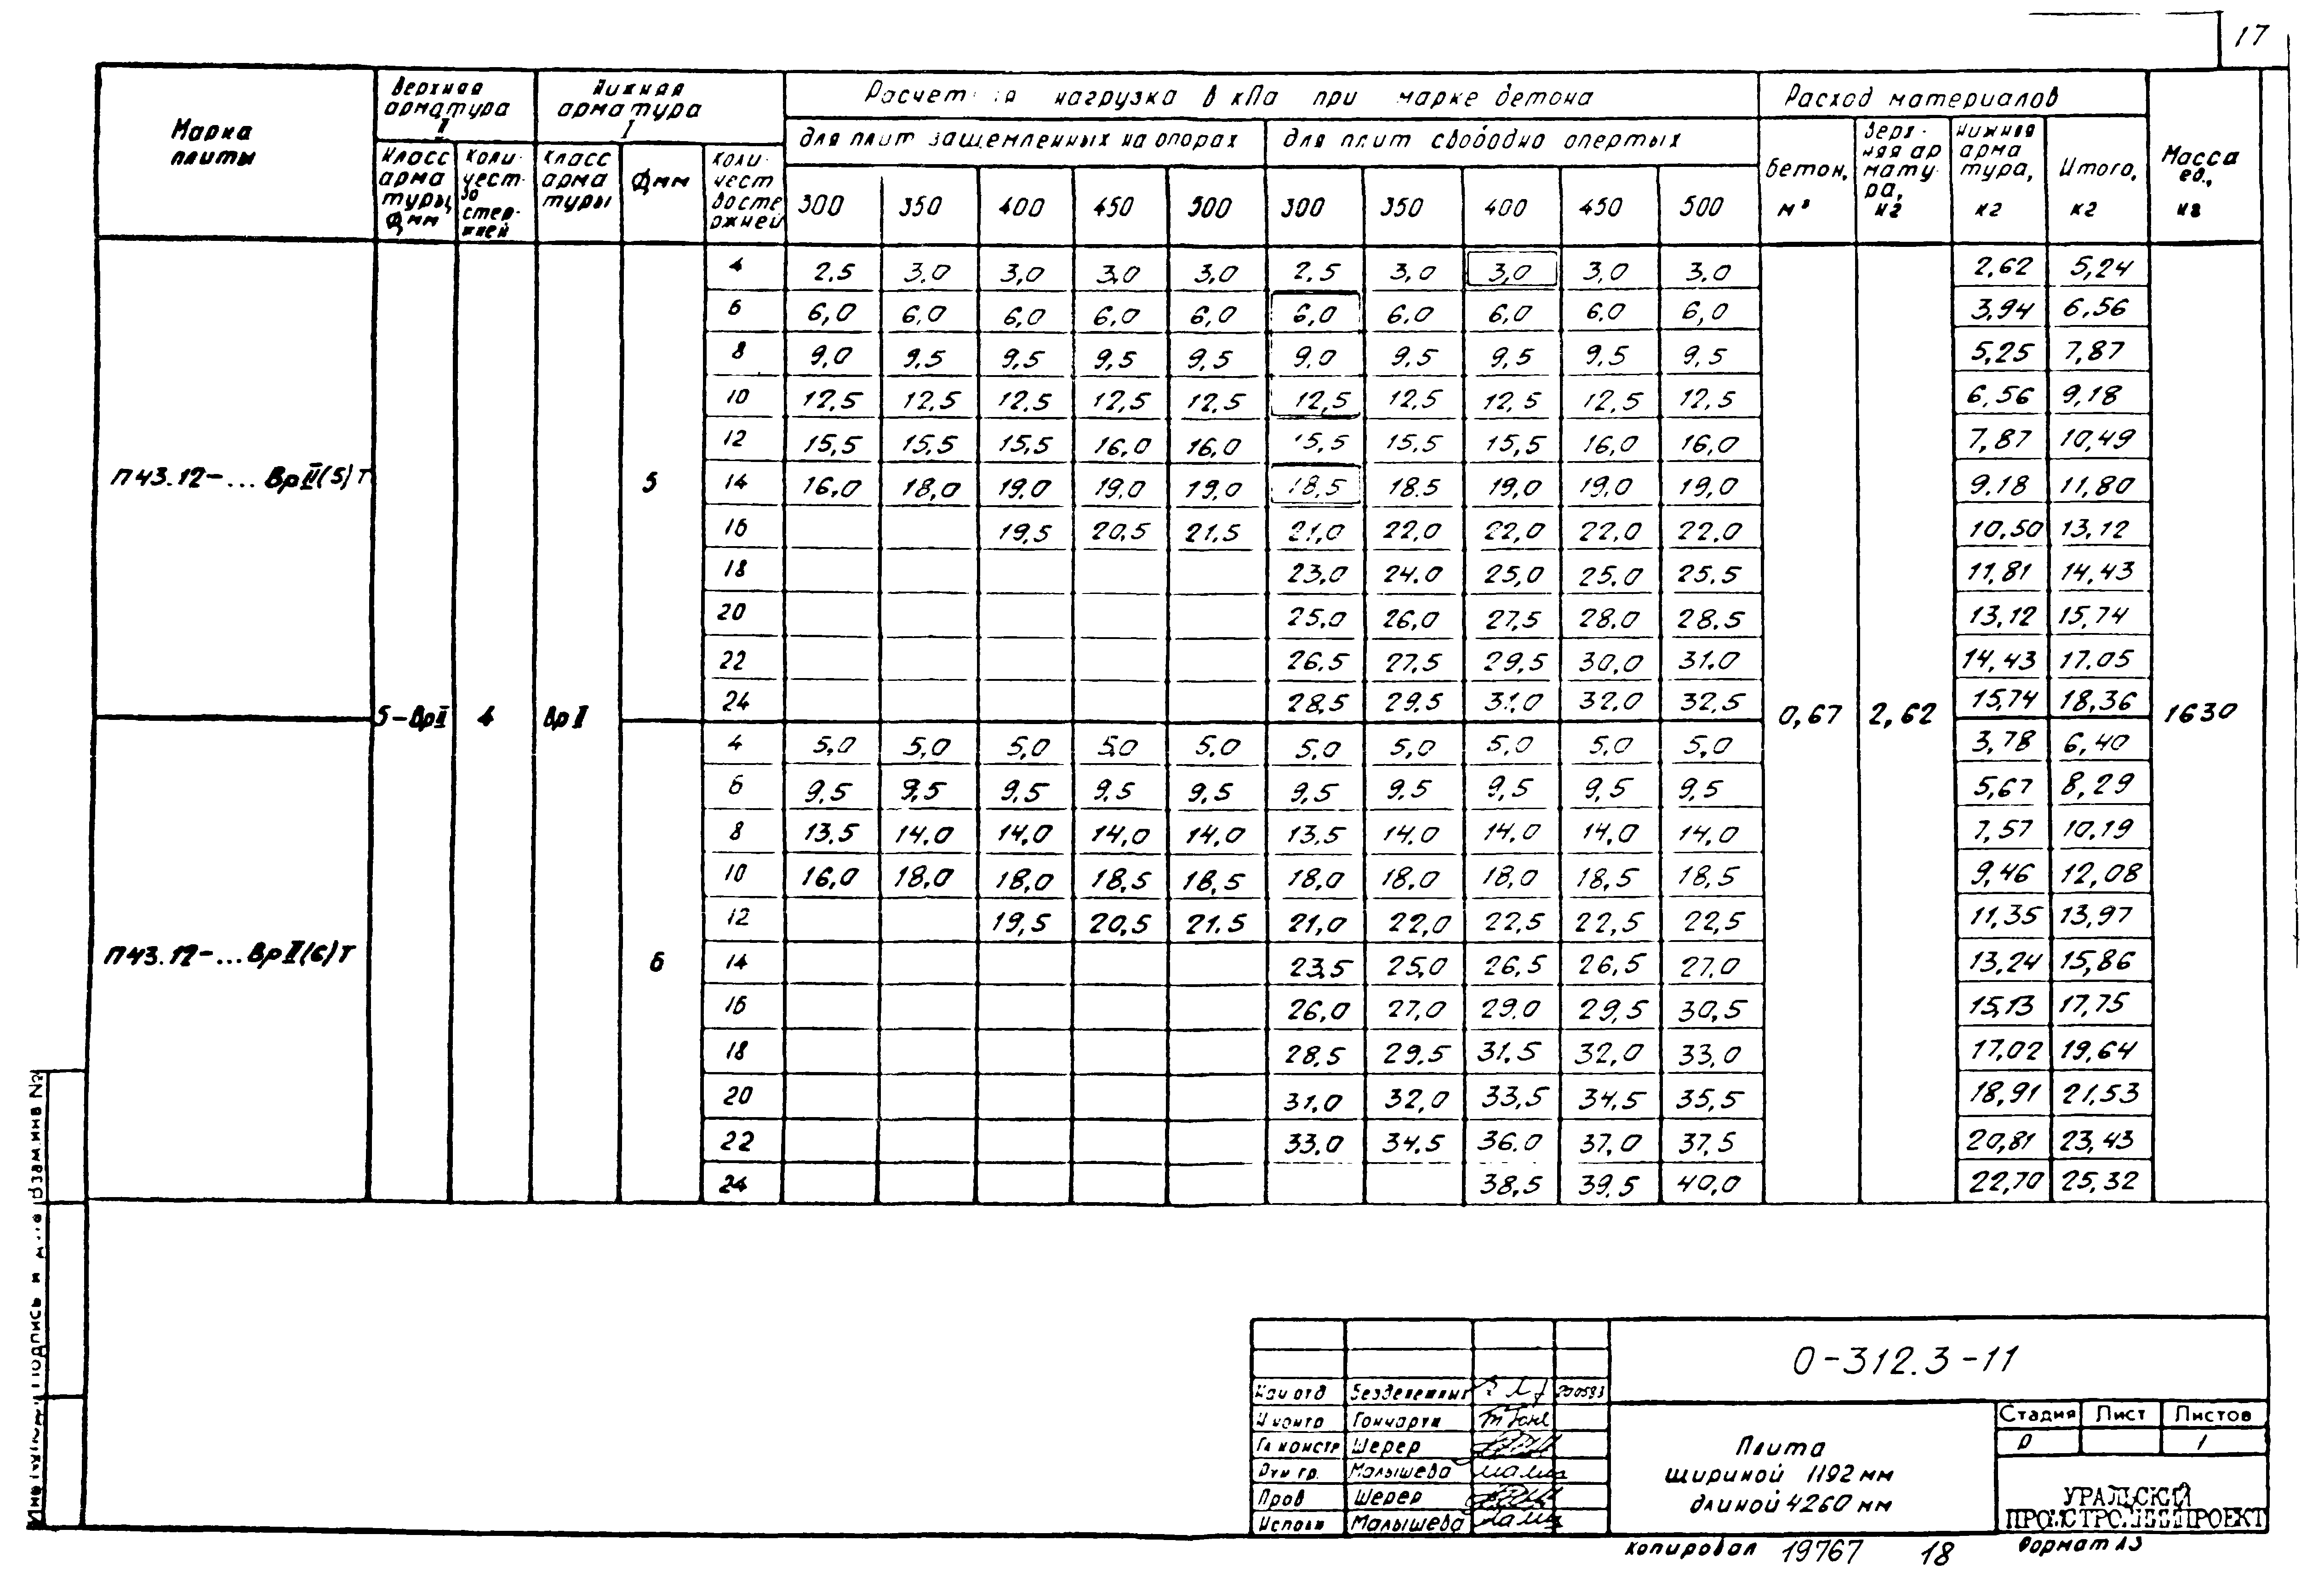 17
Марка плиты
Верхняя арматура II
Нижняя арматура I
нагрузка в кПа при марке бетона
Расход материалов
Масса ед., кг
Класс арматуры, Ф мм
Количество стержней
Класс арматуры
Ф мм
Количество стержней
для плит защемленных на опорах
для плит свободно опертых
Бетон, м³
Верхняя арматура, кг
Нижняя арматура, кг
Итого, кг
300 350 400 450 500 300 350 400 450 500
П43.12-... ВрII(5)Т
5-ВрII 4 ВрII 5
4 2.5 3.0 3,0 3,0 3,0 2,5 3,0 3,0 3,0 3,0 2,62 5,24
6 6,0 6.0 6,0 6,0 6,0 6,0 6.0 6,0 6.0 6,0 3,94 6,56
8 9,0 9,5 9,5 9,5 9,5 9,0 9,5 9,5 9,5 9,5 5,25 7,87
10 12,5 12,5 12,5 12,5 12,5 12,5 12,5 12,5 12,5 12,5 6,56 9,18
12 15,5 15,5 15,5 16,0 16,0 15,5 15,5 15,5 16,0 16,0 7,87 10,49
14 16,0 18,0 19,0 19,0 19,0 18,5 18.5 19,0 19,0 19,0 9.18 11,80
16 19,5 20,5 21,5 21,0 22,0 22,0 22,0 22,0 10,50 13,12
18 23,0 24.0 25,0 25.0 25.5 11,81 14,43
20 25,0 26,0 27,5 28.0 28.5 13,12 15,74
22 26,5 27,5 29,5 30,0 31.0 14,43 17.05
24 28,5 29,5 31,0 32,0 32,5 15,74 18,36
0,67 2,62 1630
П43.12-... ВрII(6)Т
6
4 5,0 5,0 5,0 5,0 5,0 5,0 5,0 5,0 5,0 5,0 3,78 6,40
6 9,5 9,5 9,5 9,5 9,5 9,5 9,5 9,5 9,5 9,5 5,67 8,29
8 13,5 14,0 14,0 14,0 14,0 13,5 14,0 14,0 14,0 14,0 7,57 10,19
10 16,0 18,0 18,0 18,5 18,5 18,0 18,0 18,0 18,5 18,5 9,46 12,08
12 19,5 20,5 21.5 21,0 22,0 22,5 22,5 22,5 11,35 13,97
14 23,5 25,0 26,5 26,5 27,0 13,24 15,86
16 26,0 27,0 29,0 29,5 30,5 15,13 17,75
18 28,5 29,5 31.5 32,0 33,0 17,02 19,64
20 31.0 32,0 33,5 34,5 35,5 18,91 21,53
22 33,0 34,5 36.0 37,0 37,5 20,81 23,43
24 38,5 39,5 40,0 22,70 25,32
Взам.инв №
Подпись и
О-312.3-11
Нач отд
Н контр Гончарук
Гл констр Шерер
Рук гр. Малышева
Пров Шерер
Исполн Малышева
Плита
шириной 1192 мм
длиной 4260 мм
Стадия Лист Листов
Р 1
УРАЛЬСКИЙ
ПРОМСТРОЙНИИПРОЕКТ
Копировал 19767 18 Формат А3